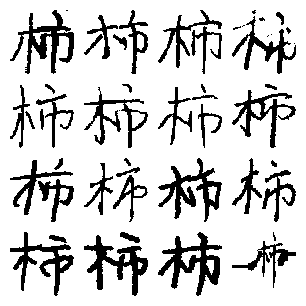 柿柿柿柿
柿柿柿柿
柿柿柿柿
柿柿柿柿